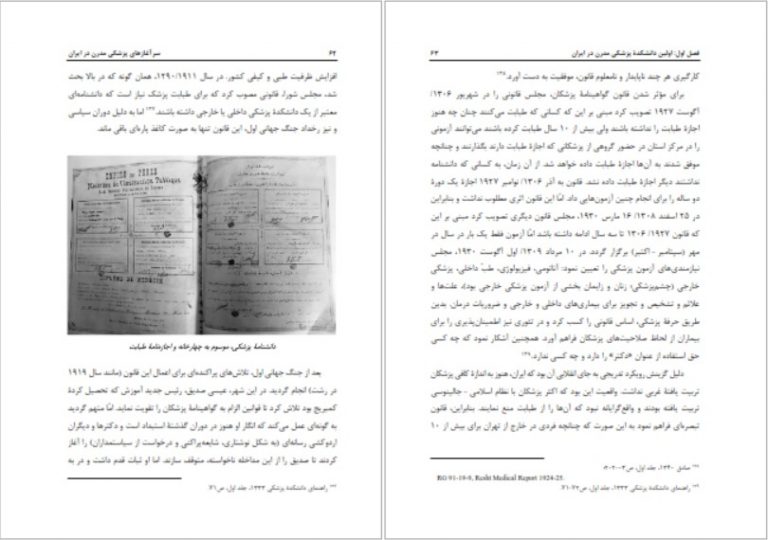 سرآغازهای پزشکی مدرن در ایران ۶۲
افزایش ظرفیت طبی و کیفی کشور. در سال ۱۲۹۰/۱۹۱۱، همان گونه که در بالا بحث
شد، مجلس شورا، قانونی مصوب کرد که برای طبابت پزشک نیاز است که دانشنامه‌ای
معتبر از یک دانشکدهٔ پزشکی داخلی یا خارجی داشته باشند. اما به دلیل دوران سیاسی
و نیز رخداد جنگ جهانی اول، این قانون تنها به صورت کاغذ پاره‌ای باقی ماند.
EMPIRE DE PERSE
Ministère de l'Instruction Publique
DIPLÔME DE MÉDECINE
دانشنامهٔ پزشکی، موسوم به چهارخانه و اجازه‌نامهٔ طبابت
بعد از جنگ جهانی اول، تلاش‌های پراکنده‌ای برای اعمال این قانون (مانند سال ۱۹۱۹
در رشت) انجام گردید. در این شهر، عیسی صدیق، رئیس جدید آموزش که تحصیل کردهٔ
کمبریج بود تلاش کرد تا قوانین الزام به گواهینامهٔ پزشکان را تقویت نماید. امّا متهم گردید
به گونه‌ای عمل می‌کند که انگار او هنوز در دوران گذشتهٔ استبداد است و دکترها و دیگران
اردوکشی رسانه‌ای (به شکل نوشتاری، شایعه‌پراکنی و درخواست از سیاستمداران) را آغاز
کردند تا صدیق را از این مداخله ناخواسته، متوقف سازند. اما او ثبات قدم داشت و در به
راهنمای دانشکدهٔ پزشکی ۱۳۳۳، جلد اول، ص۷۱
فصل اول: اولین دانشکدهٔ پزشکی مدرن در ایران ۶۳
کارگیری هر چند ناپایدار و نامعلوم قانون، موفقیت به دست آورد.
برای مؤثر شدن قانون گواهینامهٔ پزشکان، مجلس قانونی را در شهریور ۱۳۰۶/
آگوست ۱۹۲۷ تصویب کرد مبنی بر این که کسانی که طبابت می‌کنند چنان چه هنوز
اجازهٔ طبابت را نداشته باشند ولی بیش از ۱۰ سال طبابت کرده باشند می‌توانند آزمونی
را در مرکز استان در حضور گروهی از پزشکانی که اجازهٔ طبابت دارند بگذارند و چنانچه
موفق شدند به آن‌ها اجازهٔ طبابت داده خواهد شد. از آن زمان، به کسانی که دانشنامه
نداشتند دیگر اجازهٔ طبابت داده نشد. قانون به آذر ۱۳۰۶/ نوامبر ۱۹۲۷ اجازهٔ یک دورهٔ
دو ساله را برای انجام چنین آزمون‌هایی داد. امّا این قانون اثری مطلوب نداشت و بنابراین
در ۲۵ اسفند ۱۳۰۸/ ۱۶ مارس ۱۹۳۰، مجلس قانون دیگری تصویب کرد مبنی بر این
که قانون ۱۹۲۷/ ۱۳۰۶ تا سه سال ادامه داشته باشد امّا آزمون فقط یک بار در سال در
مهر (سپتامبر - اکتبر) برگزار گردد. در ۱۰ مرداد ۱۳۰۹/ اول آگوست ۱۹۳۰، مجلس
نیازمندی‌های آزمون پزشکی را تعیین نمود: آناتومی، فیزیولوژی، طبّ داخلی، پزشکی
خارجی (چشم‌پزشکی؛ زنان و زایمان بخشی از آزمون پزشکی خارجی بود)، علت‌ها و
علائم و تشخیص و تجویز برای بیماری‌های داخلی و خارجی و ضروریات درمان. بدین
طریق حرفهٔ پزشکی، اساس قانونی را کسب کرد و در تئوری نیز اطمینان‌پذیری را برای
بیماران از لحاظ صلاحیت‌های پزشکان فراهم آورد. همچنین آشکار نمود که چه کسی
حق استفاده از عنوان «دکتر» را دارد و چه کسی ندارد.
دلیل گزینش رویکرد تدریجی به جای انقلابی آن بود که ایران، هنوز به اندازهٔ کافی پزشکان
تربیت یافتهٔ غربی نداشت. واقعیت این بود که اکثر پزشکان با نظام اسلامی - جالینوسی
تربیت یافته بودند و واقع‌گرایانه نبود که آن‌ها را از طبابت منع نمایند. بنابراین، قانون
تبصره‌ای فراهم نمود به این صورت که چنانچه فردی در خارج از تهران برای بیش از ۱۰
صادق ۱۳۴۰، جلد اول، ص
RG 91-19-9, Resht Medical Report 1924-25.
راهنمای دانشکدهٔ پزشکی ۱۳۳۳، جلد اول، ص۷۲-۷۱